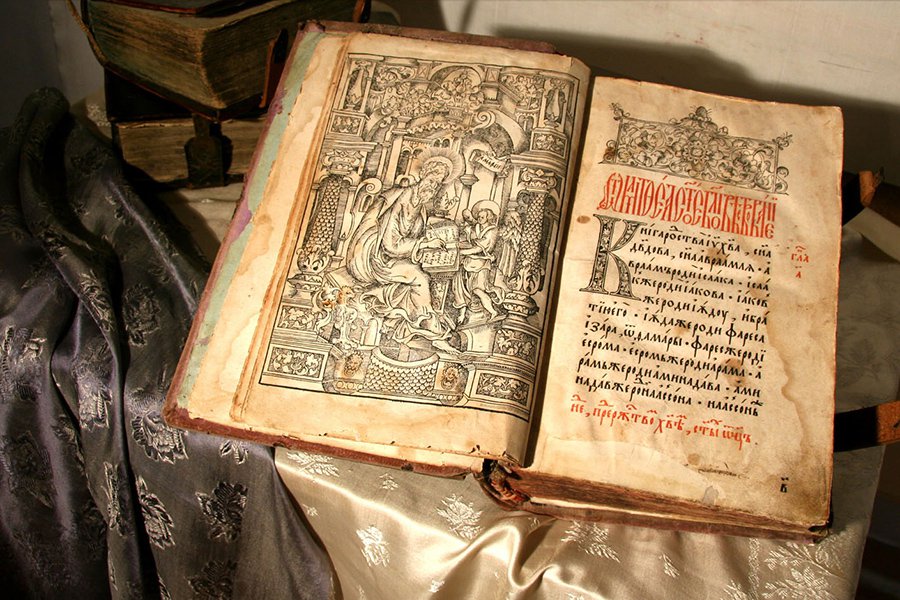 Книга родства іу҃ хв҃а, сн҃а
дв҃дова, сн҃а авраамля · а
враамъ роди исаака · ісаа
къ же роди іакова · іаков
же роди іюдоу, и бра
тію его · іюда же роди фареса
і зара, ѿ ѳамары · фаресъ же роді
есрома · есромъ же роди арама · а
рамъ же роди аминадава · ами
надавъ же роди наассона · наассонъ
не, пре рж҃тво хв҃ѣ, ст҃ы ѿц҃ъ .
гла
а
в